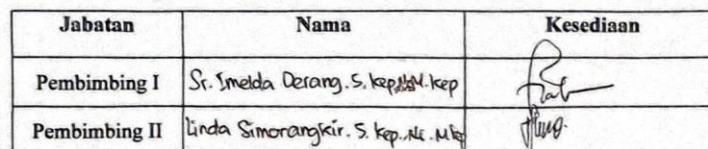 Jabatan Nama Kesediaan
Pembimbing I Sr. Imelda Derang. S. Kep M. Kep
Pembimbing II Linda Simorangkir. S. Kep., Ns. M Kep